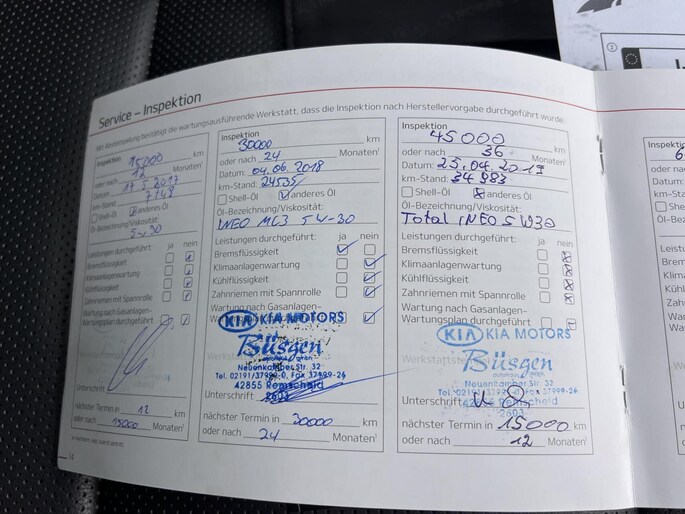 Service – Inspektion
Mit Abstempelung bestätigt die wartungsausführende Werkstatt, dass die Inspektion nach Herstellervorgabe durchgeführt wurde.
Inspektion 15000 km
oder nach 12 Monaten¹
Datum 17.5.2017
km-Stand:
Shell-Öl anderes Öl
Öl-Bezeichnung/Viskosität:
5w30
Leistungen durchgeführt: ja nein
Bremsflüssigkeit
Klimaanlagenwartung
Kühlflüssigkeit
Zahnriemen mit Spannrolle
Wartung nach Gasanlagen-
Wartungsplan durchgeführt
Unterschrift
nächster Termin in 12 km
oder nach 15000 Monaten¹
14
Inspektion
30000 km
oder nach 24 Monaten¹
Datum: 04.06.2018
km-Stand: 24535
Shell-Öl anderes Öl
Öl-Bezeichnung/Viskosität:
INEO MC3 5W-30
Leistungen durchgeführt: ja nein
Bremsflüssigkeit
Klimaanlagenwartung
Kühlflüssigkeit
Zahnriemen mit Spannrolle
Wartung nach Gasanlagen-
Wartungsplan durchgeführt
KIA KIA MOTORS
Büsgen
Neuenkamper Str. 32
42855 Remscheid
2603
Unterschrift
nächster Termin in 30000 km
oder nach 24 Monaten¹
Inspektion
45000 km
oder nach 36 Monaten¹
Datum: 25.04.2019
km-Stand: 34 983
Shell-Öl anderes Öl
Öl-Bezeichnung/Viskosität:
Total INEO 5W30
Leistungen durchgeführt: ja nein
Bremsflüssigkeit
Klimaanlagenwartung
Kühlflüssigkeit
Zahnriemen mit Spannrolle
Wartung nach Gasanlagen-
Wartungsplan durchgeführt
KIA KIA MOTORS
Büsgen
Neuenkamper Str. 32
42855 Remscheid
2603
Unterschrift
nächster Termin in 15000 km
oder nach 12 Monaten¹
Inspektion
oder nach
Datum:
km-Stand:
Shell-Öl
Öl-Bezeichnung
Leistungen
Bremsflüssigkeit